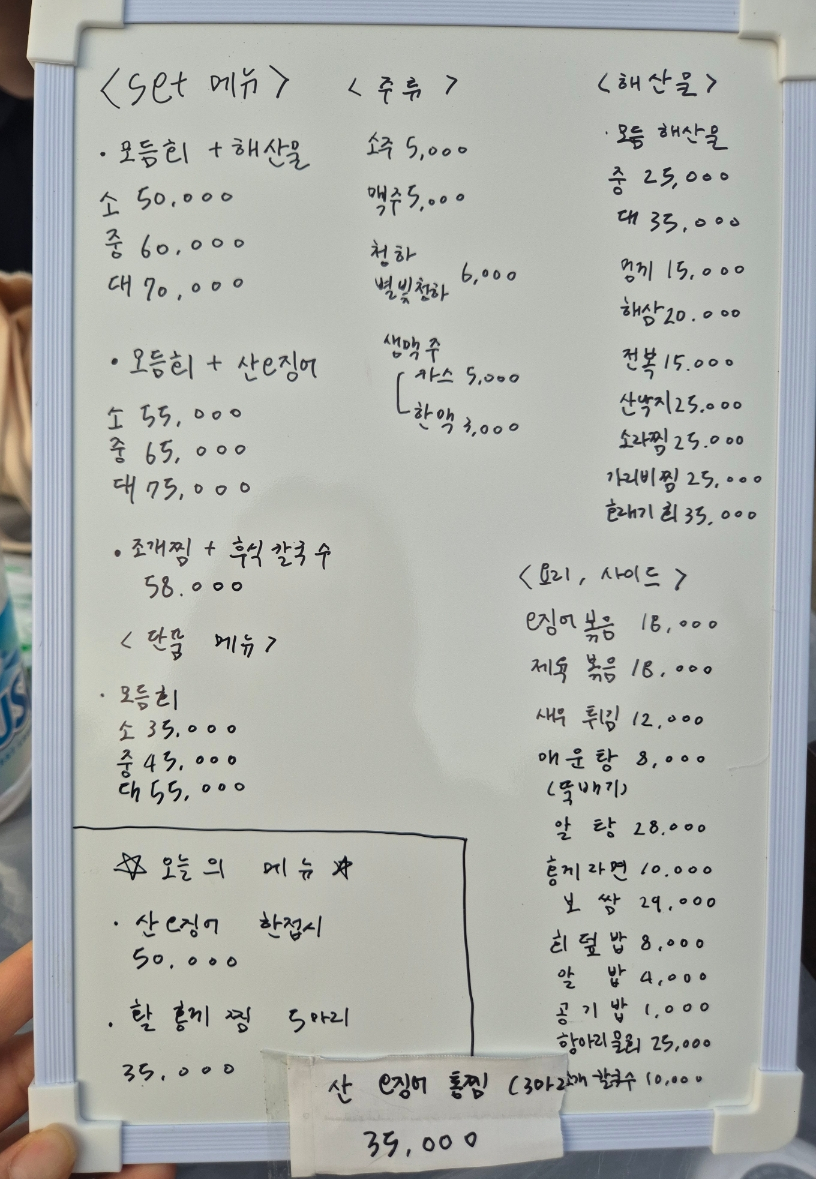 <set 메뉴>
· 모듬회 + 해산물
소 50,000
중 60,000
대 70,000
· 모듬회 + 산e징어
소 55,000
중 65,000
대 75,000
· 조개찜 + 후식 칼국수
58.000
<단품 메뉴>
· 모듬회
소 35,000
중 45,000
대 55,000
☆ 오늘의 메뉴 ☆
· 산 e징어 한접시
50,000
· 활 홍게 찜 5마리
35,000
산 e징어 통찜 (3마리
35,000
<주류>
소주 5,000
맥주 5,000
청하
별빛청하 6,000
생맥주
카스 5,000
한맥 3,000
<해산물>
· 모듬 해산물
중 25,000
대 35,000
멍게 15,000
해삼 20.000
전복 15.000
산낙지 25.000
소라찜 25.000
가리비찜 25,000
호래기 회 35,000
<요리, 사이드>
e징어 볶음 18,000
제육 볶음 18,000
새우 튀김 12,000
매운탕 8,000
(뚝배기)
알 탕 28.000
홍게라면 10.000
보 쌈 29,000
회덮밥 8,000
알 밥 4,000
공기밥 1,000
항아리물회 25,000
칼국수 10,000